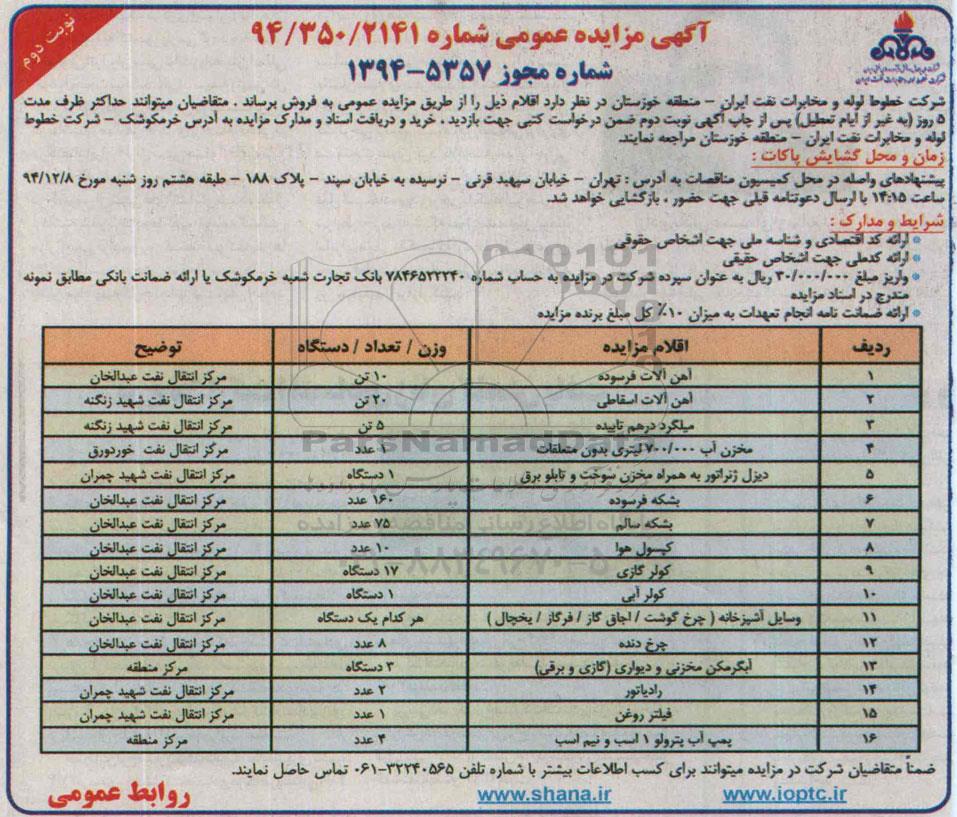 نوبت دوم
آگهی مزایده عمومی شماره ۹۴/۳۵۰/۲۱۴۱
شماره مجوز ۵۳۵۷-۱۳۹۴
شرکت خطوط لوله و مخابرات نفت ایران – منطقه خوزستان در نظر دارد اقلام ذیل را از طریق مزایده عمومی به فروش برساند . متقاضیان میتوانند حداکثر ظرف مدت
۵ روز (به غیر از ایام تعطیل) پس از چاپ آگهی نوبت دوم ضمن درخواست کتبی جهت بازدید ، خرید و دریافت اسناد و مدارک مزایده به آدرس خرمکوشک – شرکت خطوط
لوله و مخابرات نفت ایران – منطقه خوزستان مراجعه نمایند.
زمان و محل گشایش پاکات :
پیشنهادهای واصله در محل کمیسیون مناقصات به آدرس : تهران – خیابان سپهبد قرنی – نرسیده به خیابان سپند – پلاک ۱۸۸ – طبقه هشتم روز شنبه مورخ ۹۴/۱۲/۸
ساعت ۱۴:۱۵ با ارسال دعوتنامه قبلی جهت حضور ، بازگشایی خواهد شد.
شرایط و مدارک :
ارائه کد اقتصادی و شناسه ملی جهت اشخاص حقوقی
ارائه کدملی جهت اشخاص حقیقی
واریز مبلغ ۳۰/۰۰۰/۰۰۰ ریال به عنوان سپرده شرکت در مزایده به حساب شماره ۷۸۴۶۵۲۲۲۴۰ بانک تجارت شعبه خرمکوشک یا ارائه ضمانت بانکی مطابق نمونه
مندرج در اسناد مزایده
ارائه ضمانت نامه انجام تعهدات به میزان ۱۰٪ کل مبلغ برنده مزایده
ردیف اقلام مزایده وزن / تعداد / دستگاه توضیح
۱ آهن آلات فرسوده ۱۰ تن مرکز انتقال نفت عبدالخان
۲ آهن آلات اسقاطی ۲۰ تن مرکز انتقال نفت شهید زنگنه
۳ میلگرد درهم تاپیده ۵ تن مرکز انتقال نفت شهید زنگنه
۴ مخزن آب ۷۰۰/۰۰۰ لیتری بدون متعلقات عدد مرکز انتقال نفت خوردورق
۵ دیزل ژنراتور به همراه مخزن سوخت و تابلو برق ۱ دستگاه مرکز انتقال نفت شهید چمران
۶ بشکه فرسوده ۱۶۰ عدد مرکز انتقال نفت عبدالخان
۷ بشکه سالم ۷۵ عدد مرکز انتقال نفت عبدالخان
۸ کپسول هوا ۱۰ عدد مرکز انتقال نفت عبدالخان
۹ کولر گازی ۱۷ دستگاه مرکز انتقال نفت عبدالخان
۱۰ کولر آبی ۱ دستگاه مرکز انتقال نفت عبدالخان
۱۱ وسایل آشپزخانه ( چرخ گوشت / اجاق گاز / فرگاز / یخچال ) هر کدام یک دستگاه مرکز انتقال نفت عبدالخان
۱۲ چرخ دنده ۸ عدد مرکز انتقال نفت عبدالخان
۱۳ آبگرمکن مخزنی و دیواری (گازی و برقی) ۳ دستگاه مرکز منطقه
۱۴ رادیاتور ۲ عدد مرکز انتقال نفت شهید چمران
۱۵ فیلتر روغن ۱ عدد مرکز انتقال نفت شهید چمران
۱۶ پمپ آب پترولو ۱ اسب و نیم اسب ۴ عدد مرکز منطقه
ParsNamadData
ضمناً متقاضیان شرکت در مزایده میتوانند برای کسب اطلاعات بیشتر با شماره تلفن ۳۲۲۴۰۵۶۵-۰۶۱ تماس حاصل نمایند.
www.ioptc.ir www.shana.ir روابط عمومی